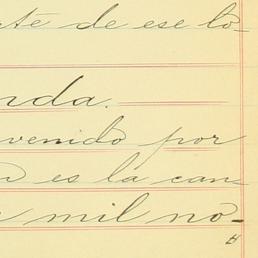 rte de ese lo-
nda.
venido por
n es la can-
mil no-